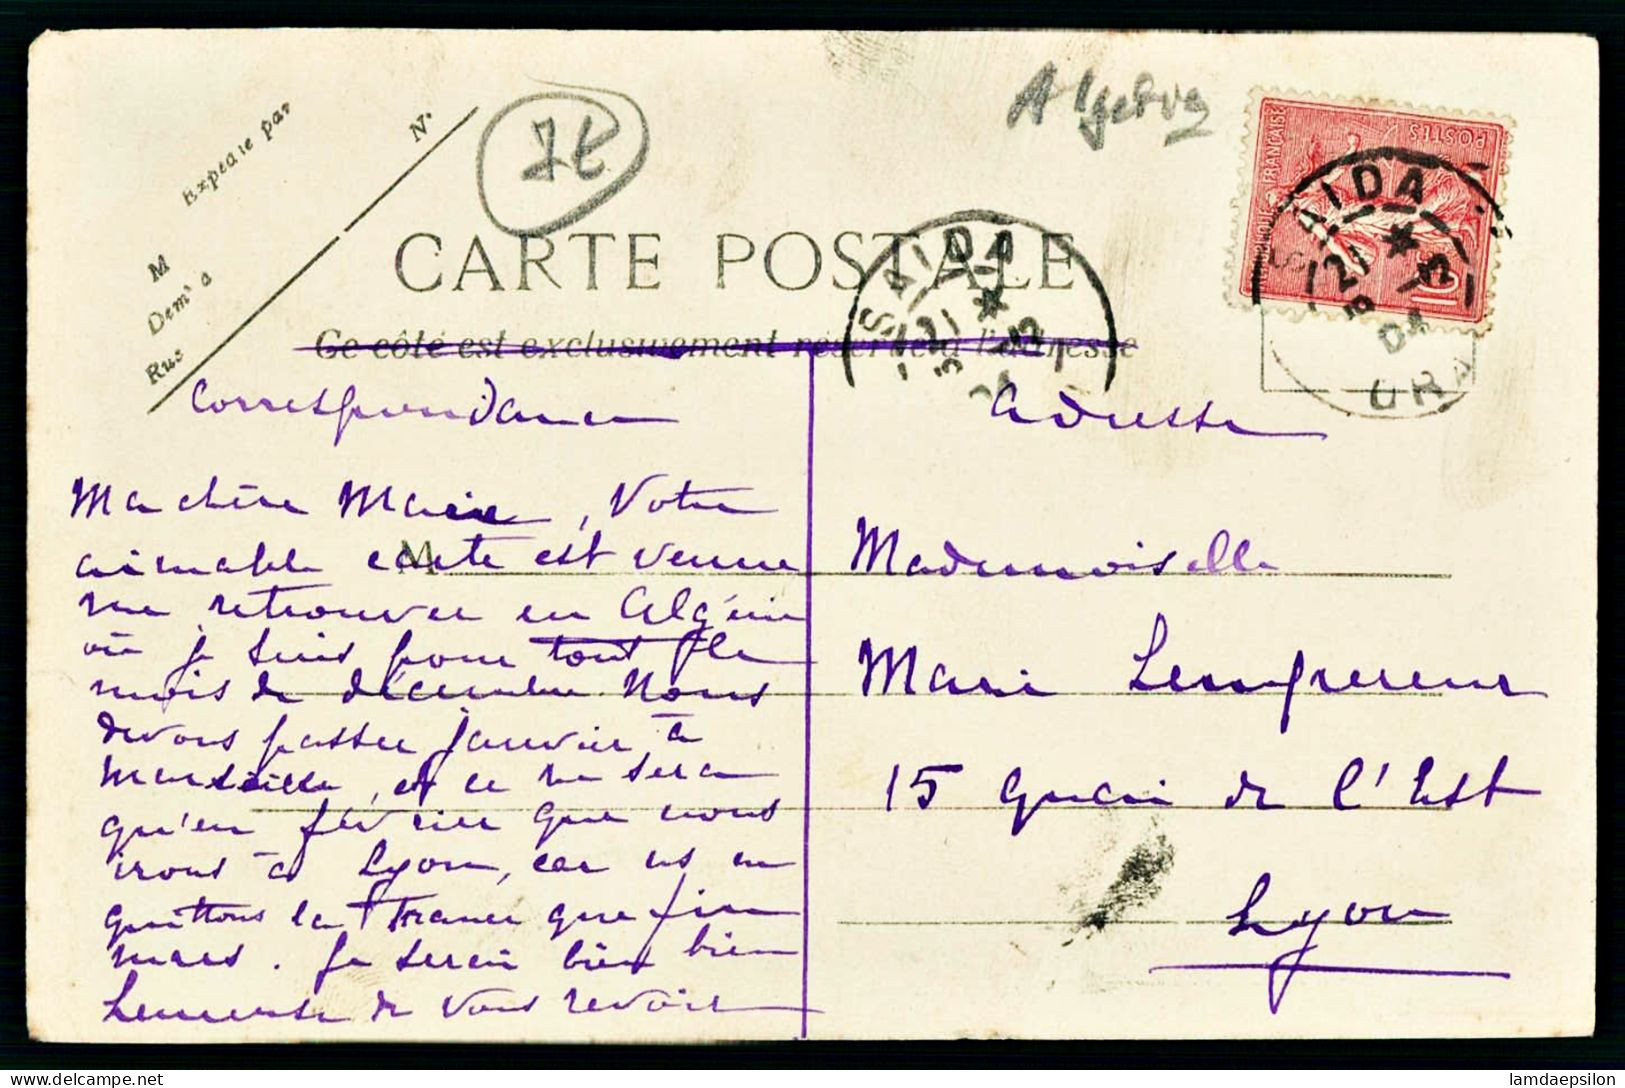 Expédié par
N°
M
Dem^t à
Rue
CARTE POSTALE
Ce côté est exclusivement réservé à l'adresse
SAIDA
AIDA
ORA
REPUBLIQUE FRANÇAISE
POSTES
10
Correspondance
Adresse
Ma chère Marie, Votre
aimable carte est venue
me retrouver en Algérie
où je suis pour tout le
mois de décembre. Nous
devons passer janvier à
Marseille, et ce ne sera
qu'en février que nous
irons à Lyon, car ns ne
quittons la France que fin
mars. Je serai bien bien
heureuse de vous revoir
M
Mademoiselle
Marie
15 Quai de l'Est
Lyon
lamdaepsilon
www.delcampe.net